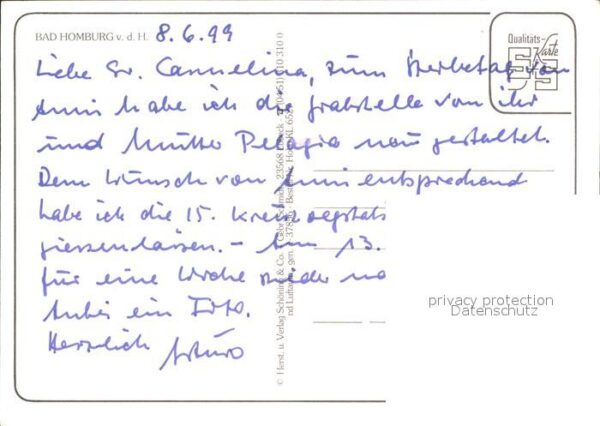 BAD HOMBURG v. d. H. 8.6.99
Qualitäts-
Karte
Liebe Sr. Carmelina, zum Sterbetag von
habe ich die Grabstelle von ihr
und Mutter Pelagia neu gestaltet.
Dem Wunsch von entsprechend
habe ich die 15.
giessen lassen. – Am 13.
für eine Woche wieder na
ein Foto.
Herzlich Arturo
© Herst. u. Verlag Schöning & Co. + Gebr. Schmidt, 23568 Lübeck
privacy protection
Datenschutz